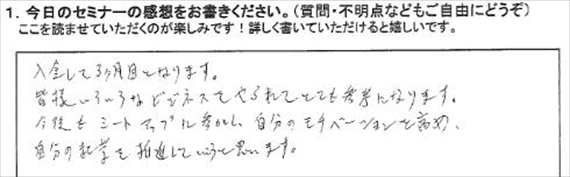 1. 今日のセミナーの感想をお書きください。(質問・不明点などもご自由にどうぞ)
ここを読ませていただくのが楽しみです！詳しく書いていただけると嬉しいです。
入会して3ヶ月目となります。
皆様いろいろなビジネスをやられてとても参考になります。
今後もミートアップに参加し、自分のモチベーションを高め、
自分の起業を推進していこうと思います。